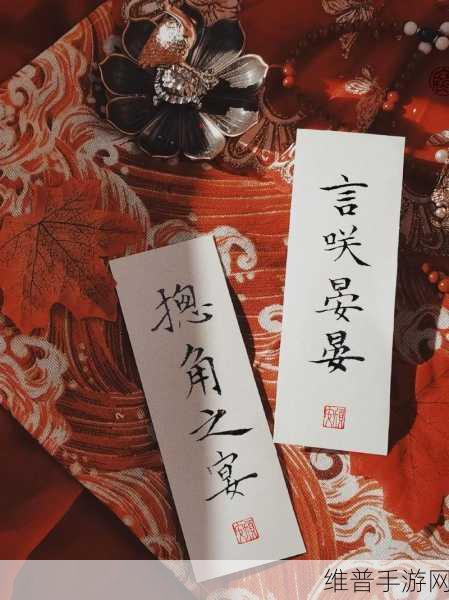 摠角之宴
言咲晏晏
维普手游网